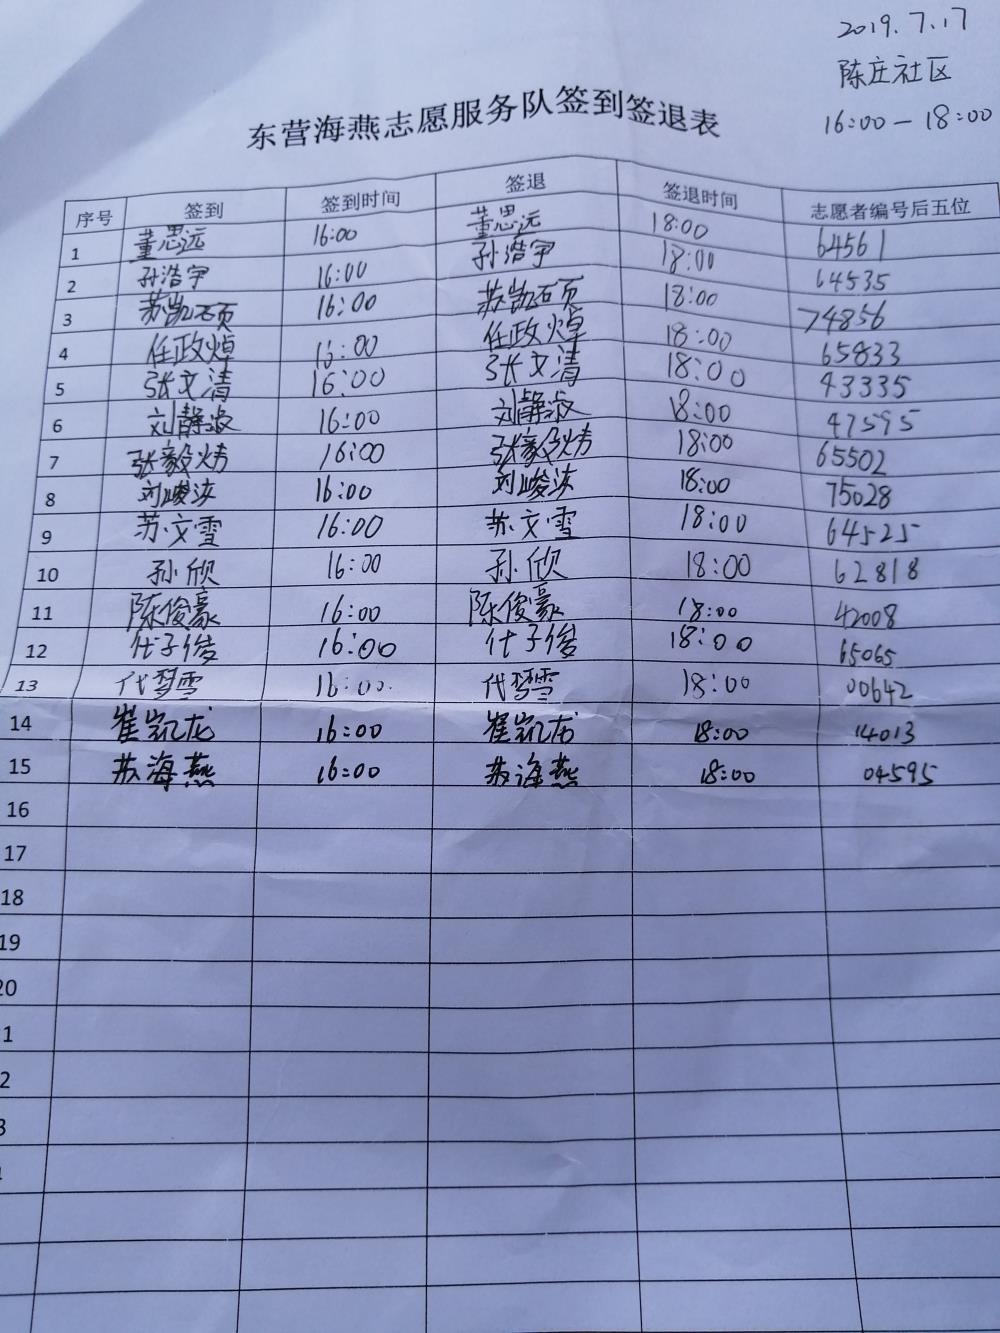 2019.7.17
陈庄社区
16:00-18:00
东营海燕志愿服务队签到签退表
序号 签到 签到时间 签退 签退时间 志愿者编号后五位
1 董思远 16:00 董思远 18:00 64561
2 孙浩宇 16:00 孙浩宇 18:00 64535
3 苏凯硕 16:00 苏凯硕 18:00 74856
4 任政焯 16:00 任政焯 18:00 65833
5 张文清 16:00 张文清 18:00 43335
6 刘静淑 16:00 刘静淑 18:00 47595
7 张毅炜 16:00 张毅炜 18:00 65502
8 刘峻 16:00 刘峻 18:00 75028
9 苏文雪 16:00 苏文雪 18:00 64525
10 孙欣 16:00 孙欣 18:00 62818
11 陈俊豪 16:00 陈俊豪 18:00 42008
12 代子俊 16:00 代子俊 18:00 65065
13 代梦雪 16:00 代梦雪 18:00 00642
14 崔凯龙 16:00 崔凯龙 18:00 14013
15 苏海燕 16:00 苏海燕 18:00 04595
16
17
18
19
20
1
2
3